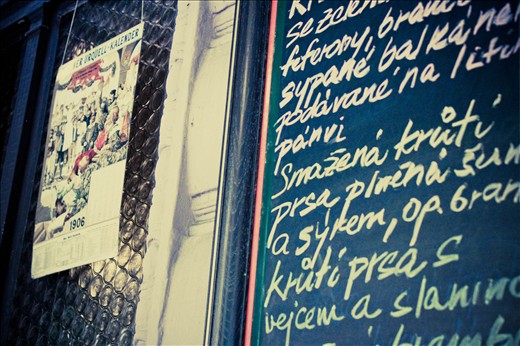 ER URQUELL-KALENDER
1906
se zelen
feferony, bramb
sypané balkán
podávané na litin
pánvi
Smažená krůtí
prsa plněná šun
a sýrem, op. bram
krůtí prsa s
vejcem a slanino